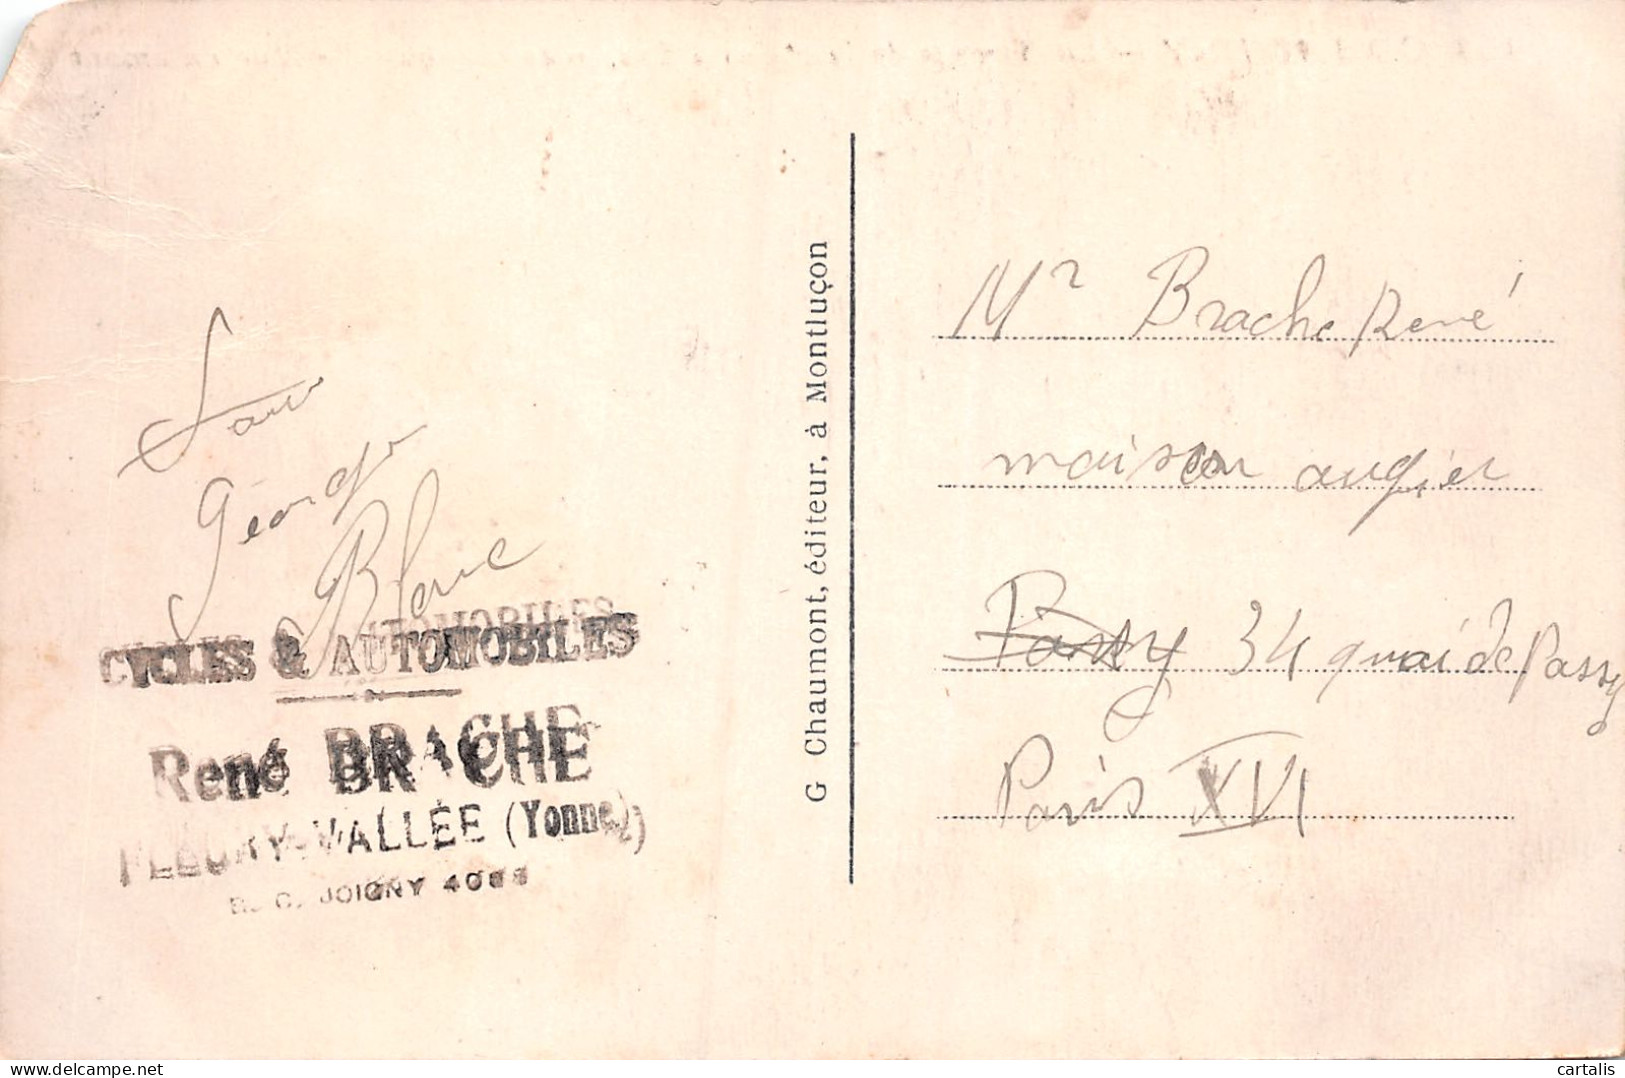 Georges
Blanc
CYCLES & AUTOMOBILES
René BRACHE
FLEURY-VALLÉE (Yonne)
R. C. JOIGNY
G Chaumont, éditeur, à Montluçon
Mr Brache René
maison augier
34 quai de Passy
Paris XVI
delcampe.net
cartalis